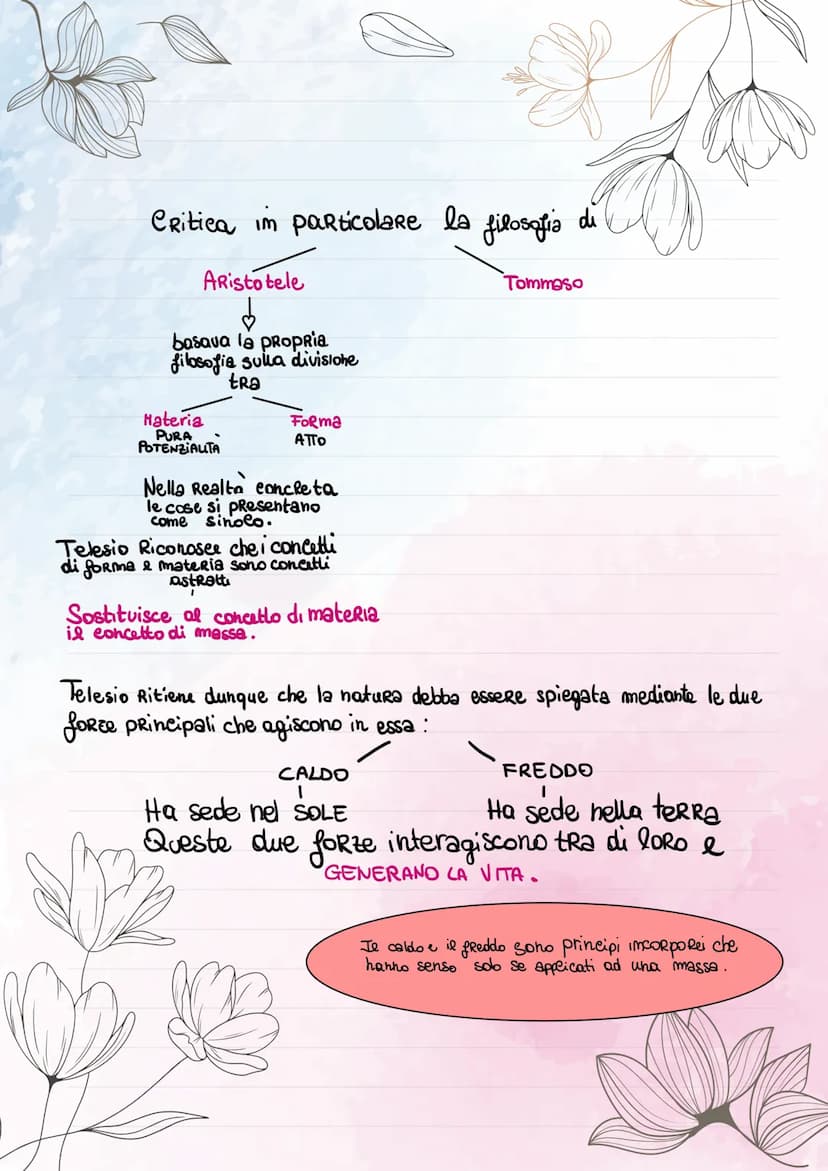 Critica in particolare la filosofia di
Aristotele
Tommaso
basava la propria
filosofia sulla divisione
tra
Materia
Forma
PURA
POTENZIALITÀ
ATTO
Nella Realtà concreta
le cose si presentano
come sinolo.
Telesio Riconosce che i concetti
di forma e materia sono concetti
astratti
Sostituisce al concetto di materia
il concetto di massa.
Telesio Ritiene dunque che la natura debba essere spiegata mediante le due
forze principali che agiscono in essa :
CALDO
FREDDO
Ha sede nel SOLE
Ha sede nella terra
Queste due forze interagiscono tra di loro e
GENERANO LA VITA .
Il caldo e il freddo sono principi incorporei che
hanno senso solo se applicati ad una massa .